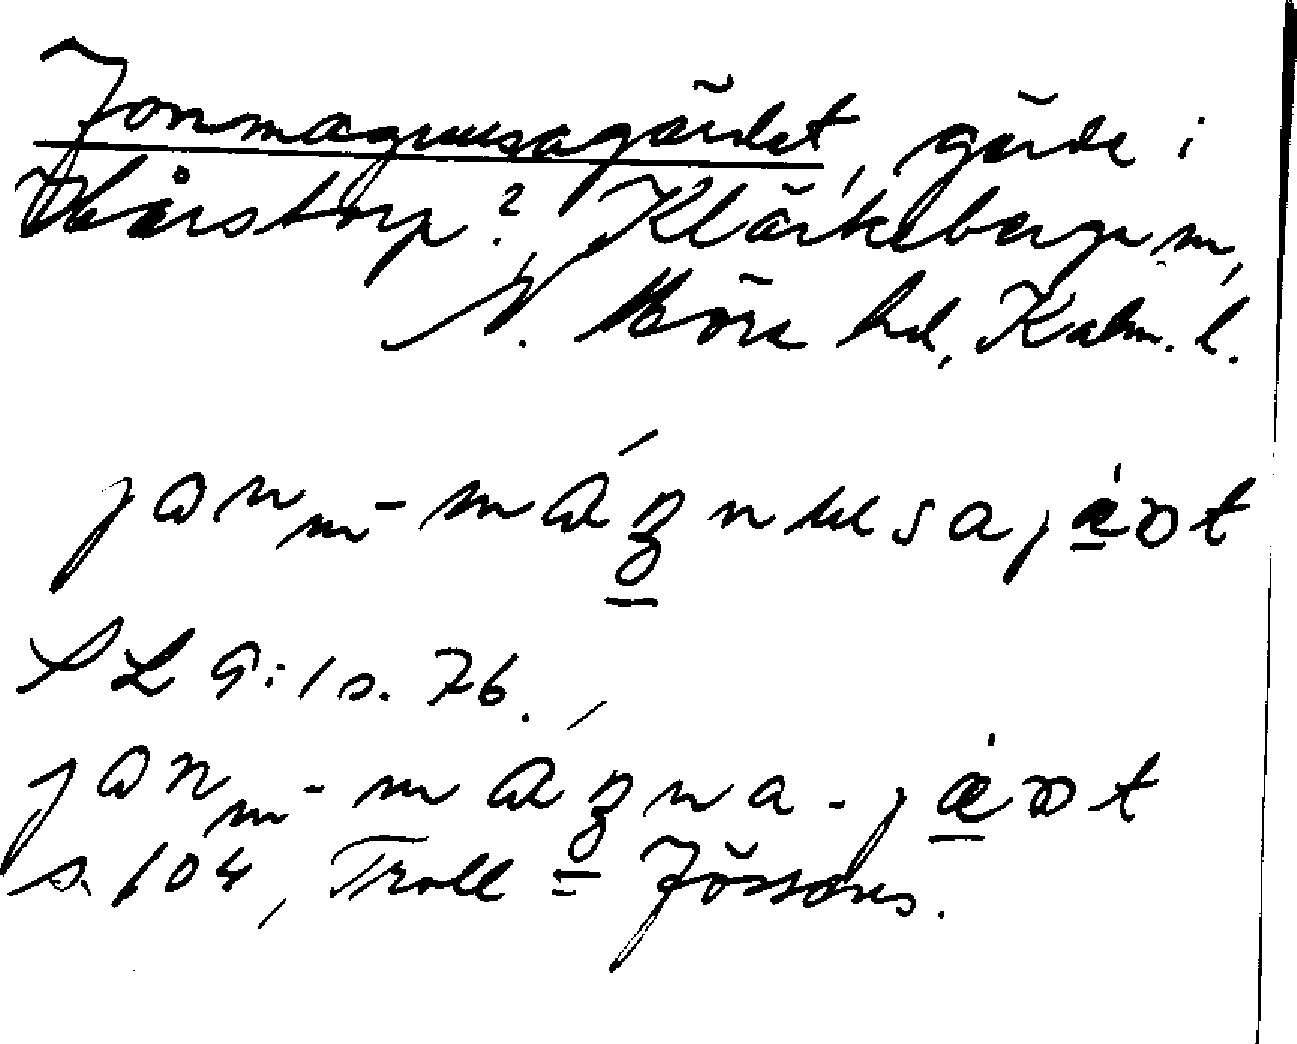 Jonmagnusagärdet, gärde i
Vbårstorp? Kläckeberga sn,
N. Möre hd, Kalm. l.
jɷnm-mágnusajæ̀ɷt
SL 9:1 s. 76.,
jɷnm-mágna-jæ̀ɷt
s. 104, Troll = Jössons.